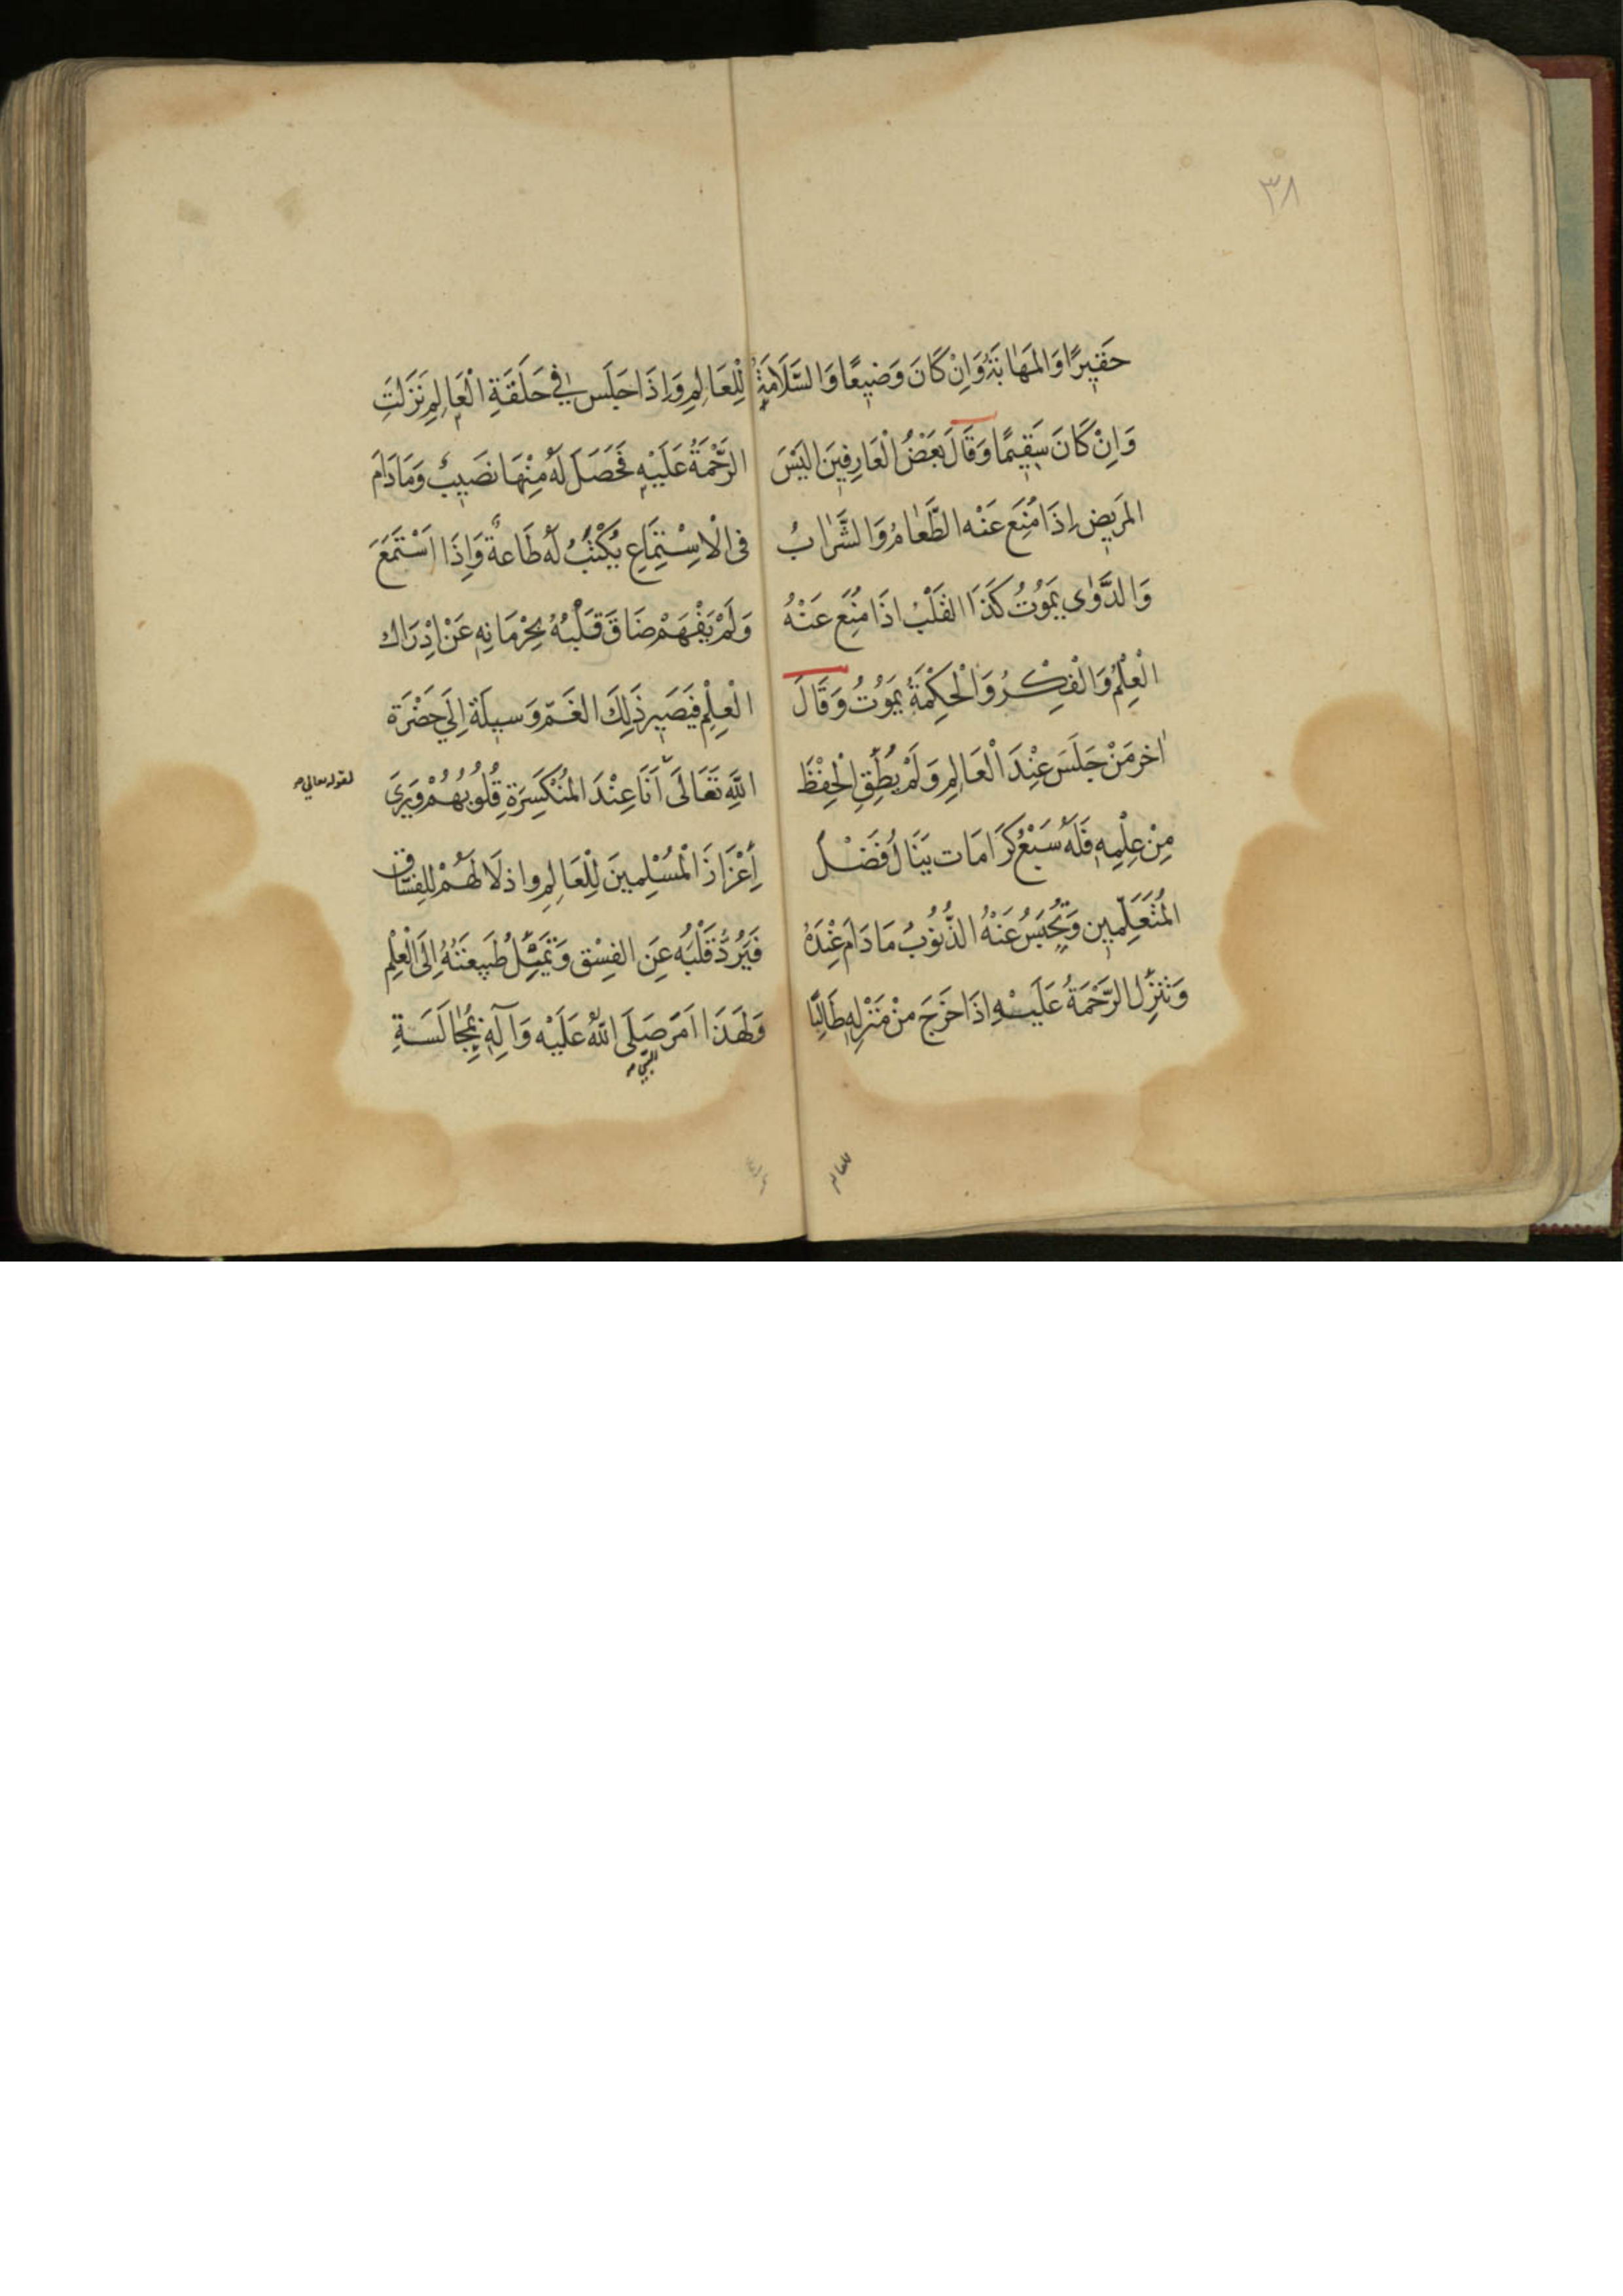 ٣٨
حَقيرًا وَالمَهٰابَةُ وَاِنْ كَانَ وَضيعًا وَالسَّلَامَةُ
وَاِنْ كَانَ سَقيمًا وَقَالَ بَعْضُ الْعَارِفينَ اَلَيْسَ
المَريض اِذَا مُنِعَ عَنْه الطَّعٰامُ وَالشَّرٰابُ
وَالدَّوٰى يَمَوُتُ كَذَا القَلْبُ اذَا مُنِعَ عَنْهُ
الْعِلْمُ وَالْفِكْرُ وَالْحِكْمَةُ يَمَوُتُ وَقَالَ
اٰخر مَنْ جَلَسَ عِنْدَ الْعَالِمِ وَلَمْ يُطِقِ الْحِفْظَ
مِنْ عِلْمِه فَلَهُ سَبْعُ كَرَامَات يَنَالُ فَضْلَ
المُتَعَلِّمين وَتُحْبَسُ عَنْهُ الذُّنوُبُ مَا دَامَ عِنْدَهُ
وَتنزِّل الرَّحْمَةُ عَلَيْهِ اِذَا خَرَجَ منْ مَنْزِلِه طَالِبًا
للعالم
لِلْعَالِمِ وَاِذَا جَلَسَ في حَلَقَةِ الْعَالِمِ نَزَلَتِ
الرَّحْمَةُ عَلَيْهِ فَحَصَلَ لَهُ مِنْهَا نصَيبٌ وَمَادَامَ
فى الْاِسْتِمَاعِ يُكْتَبُ لَهُ طَاعةٌ وَاِذَا اسْتَمَعَ
وَلَمْ يَفْهَمْ ضَاقَ قَلْبُهُ بِحِرْمَانِه عَنْ اِدْرَاك
الْعِلْمِ فَيَصير ذَلِكَ الغَمّ وَسيلَة اِلَى حَضْرَة
اللّهِ تَعَالَى اَنَا عِنْدَ المُنْكَسِرَةِ قُلُوبُهُمْ وَيَرىَ
لقوله تعالي
اِعْزَازَ الْمُسْلِمينَ لِلْعَالِمِ واذلَا لَهُمْ لِلفسّاق
فَيَرُدُّ قَلْبَه عَنِ الفِسْق وَتَمَيلُ طَبيعَتَهُ اِلَى الْعِلْم
وَلِهَذَا اَمَرَ صَلَى اللّهُ عَلَيْه وَآلِه بِمُجٰالَسَةِ
النبي